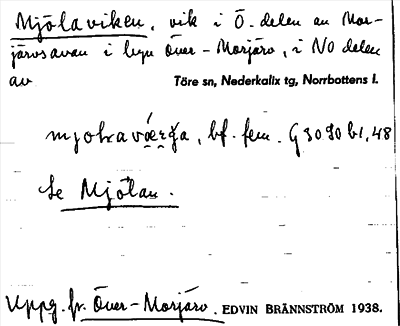 Mjölaviken, vik i Ö. delen av Mor-
järvsavan i byn Över-Morjärv, i NO delen
av Töre sn, Nederkalix tg, Norrbottens l.
bf. fem. G 3090 b1, 48
Se Mjölan.
Uppg. fr. Över-Morjärv. EDVIN BRÄNNSTRÖM 1938.